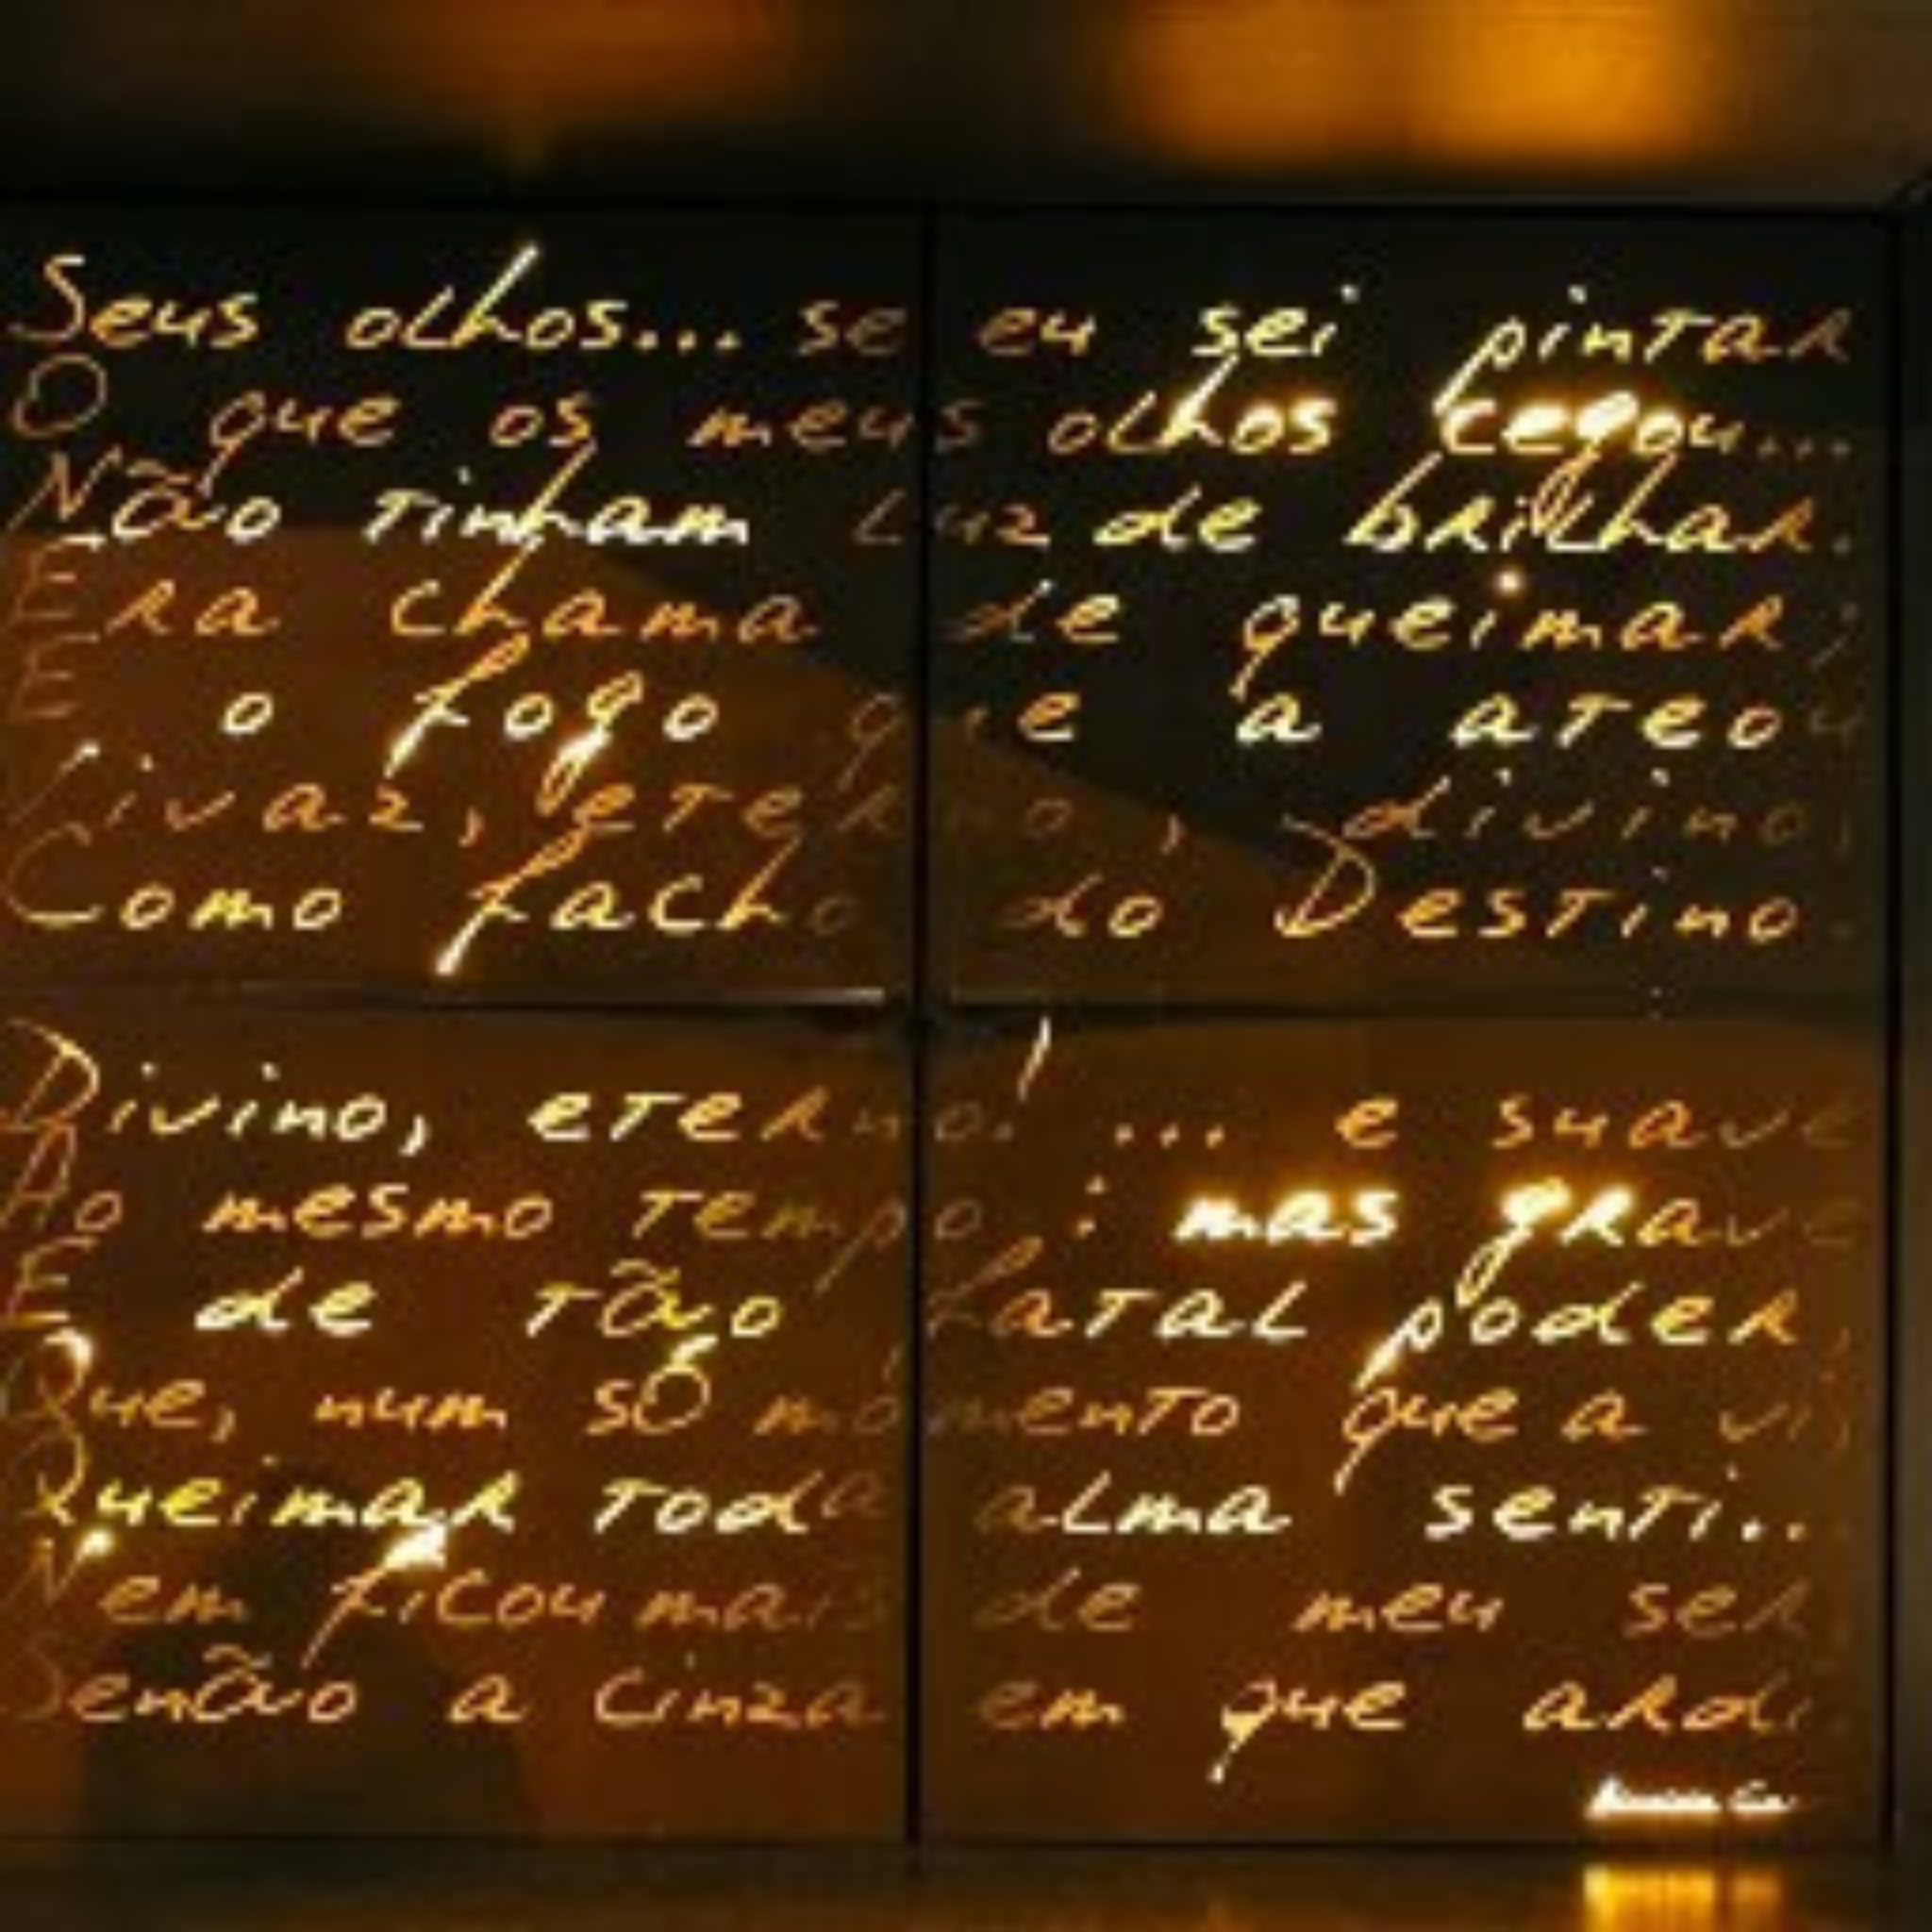 Seus olhos... se eu sei pintar
O que os meus olhos cegou...
Não tinham luz de brilhar.
Era chama de queimar;
E o fogo que a ateou
Vivaz, eterno, divino,
Como facho do Destino.
Divino, eterno! ... e suave
Ao mesmo tempo: mas grave
E de tão fatal poder,
Que, num só momento que a vi,
Queimar toda alma senti..
Nem ficou mais de meu ser
Senão a cinza em que ardi.